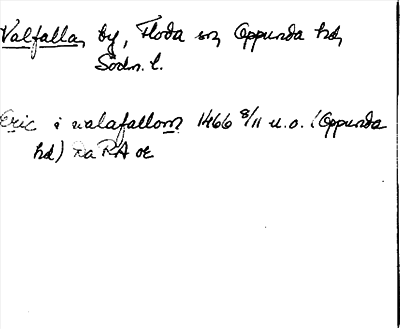 Valfalla, by, Floda sn, Oppunda hd,
Södm. l.
Eric i walafallom 1466 8/11 u.o. (Oppunda
hd) Da RA or